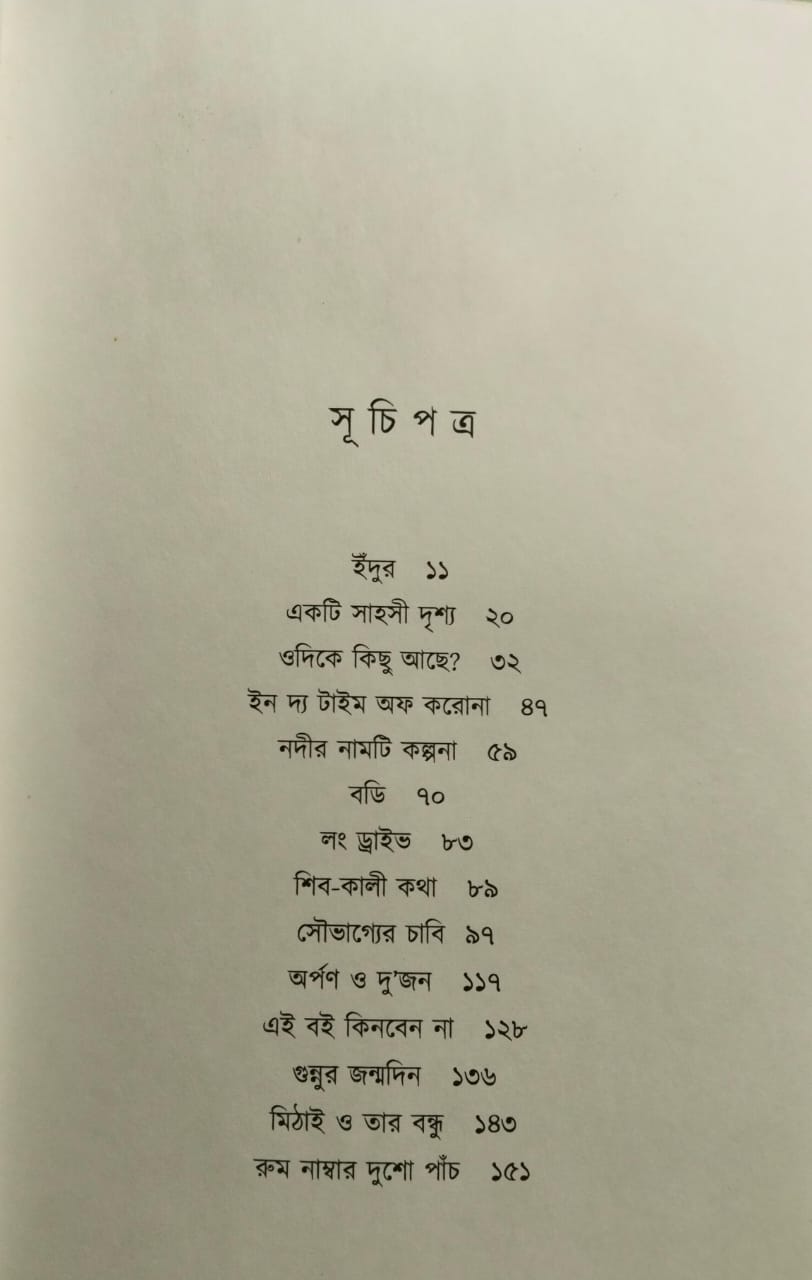 সূচিপত্র
ইঁদুর ১১
একটি সাহসী দৃশ্য ২০
ওদিকে কিছু আছে? ৩২
ইন দ্য টাইম অফ করোনা ৪৭
নদীর নামটি কল্পনা ৫৯
বডি ৭০
লং ড্রাইভ ৮৩
শিব-কালী কথা ৮৯
সৌভাগ্যের চাবি ৯৭
অর্পণ ও দু'জন ১১৭
এই বই কিনবেন না ১২৮
গুন্নুর জন্মদিন ১৩৬
মিঠাই ও তার বন্ধু ১৪৩
রুম নাম্বার দুশো পাঁচ ১৫১